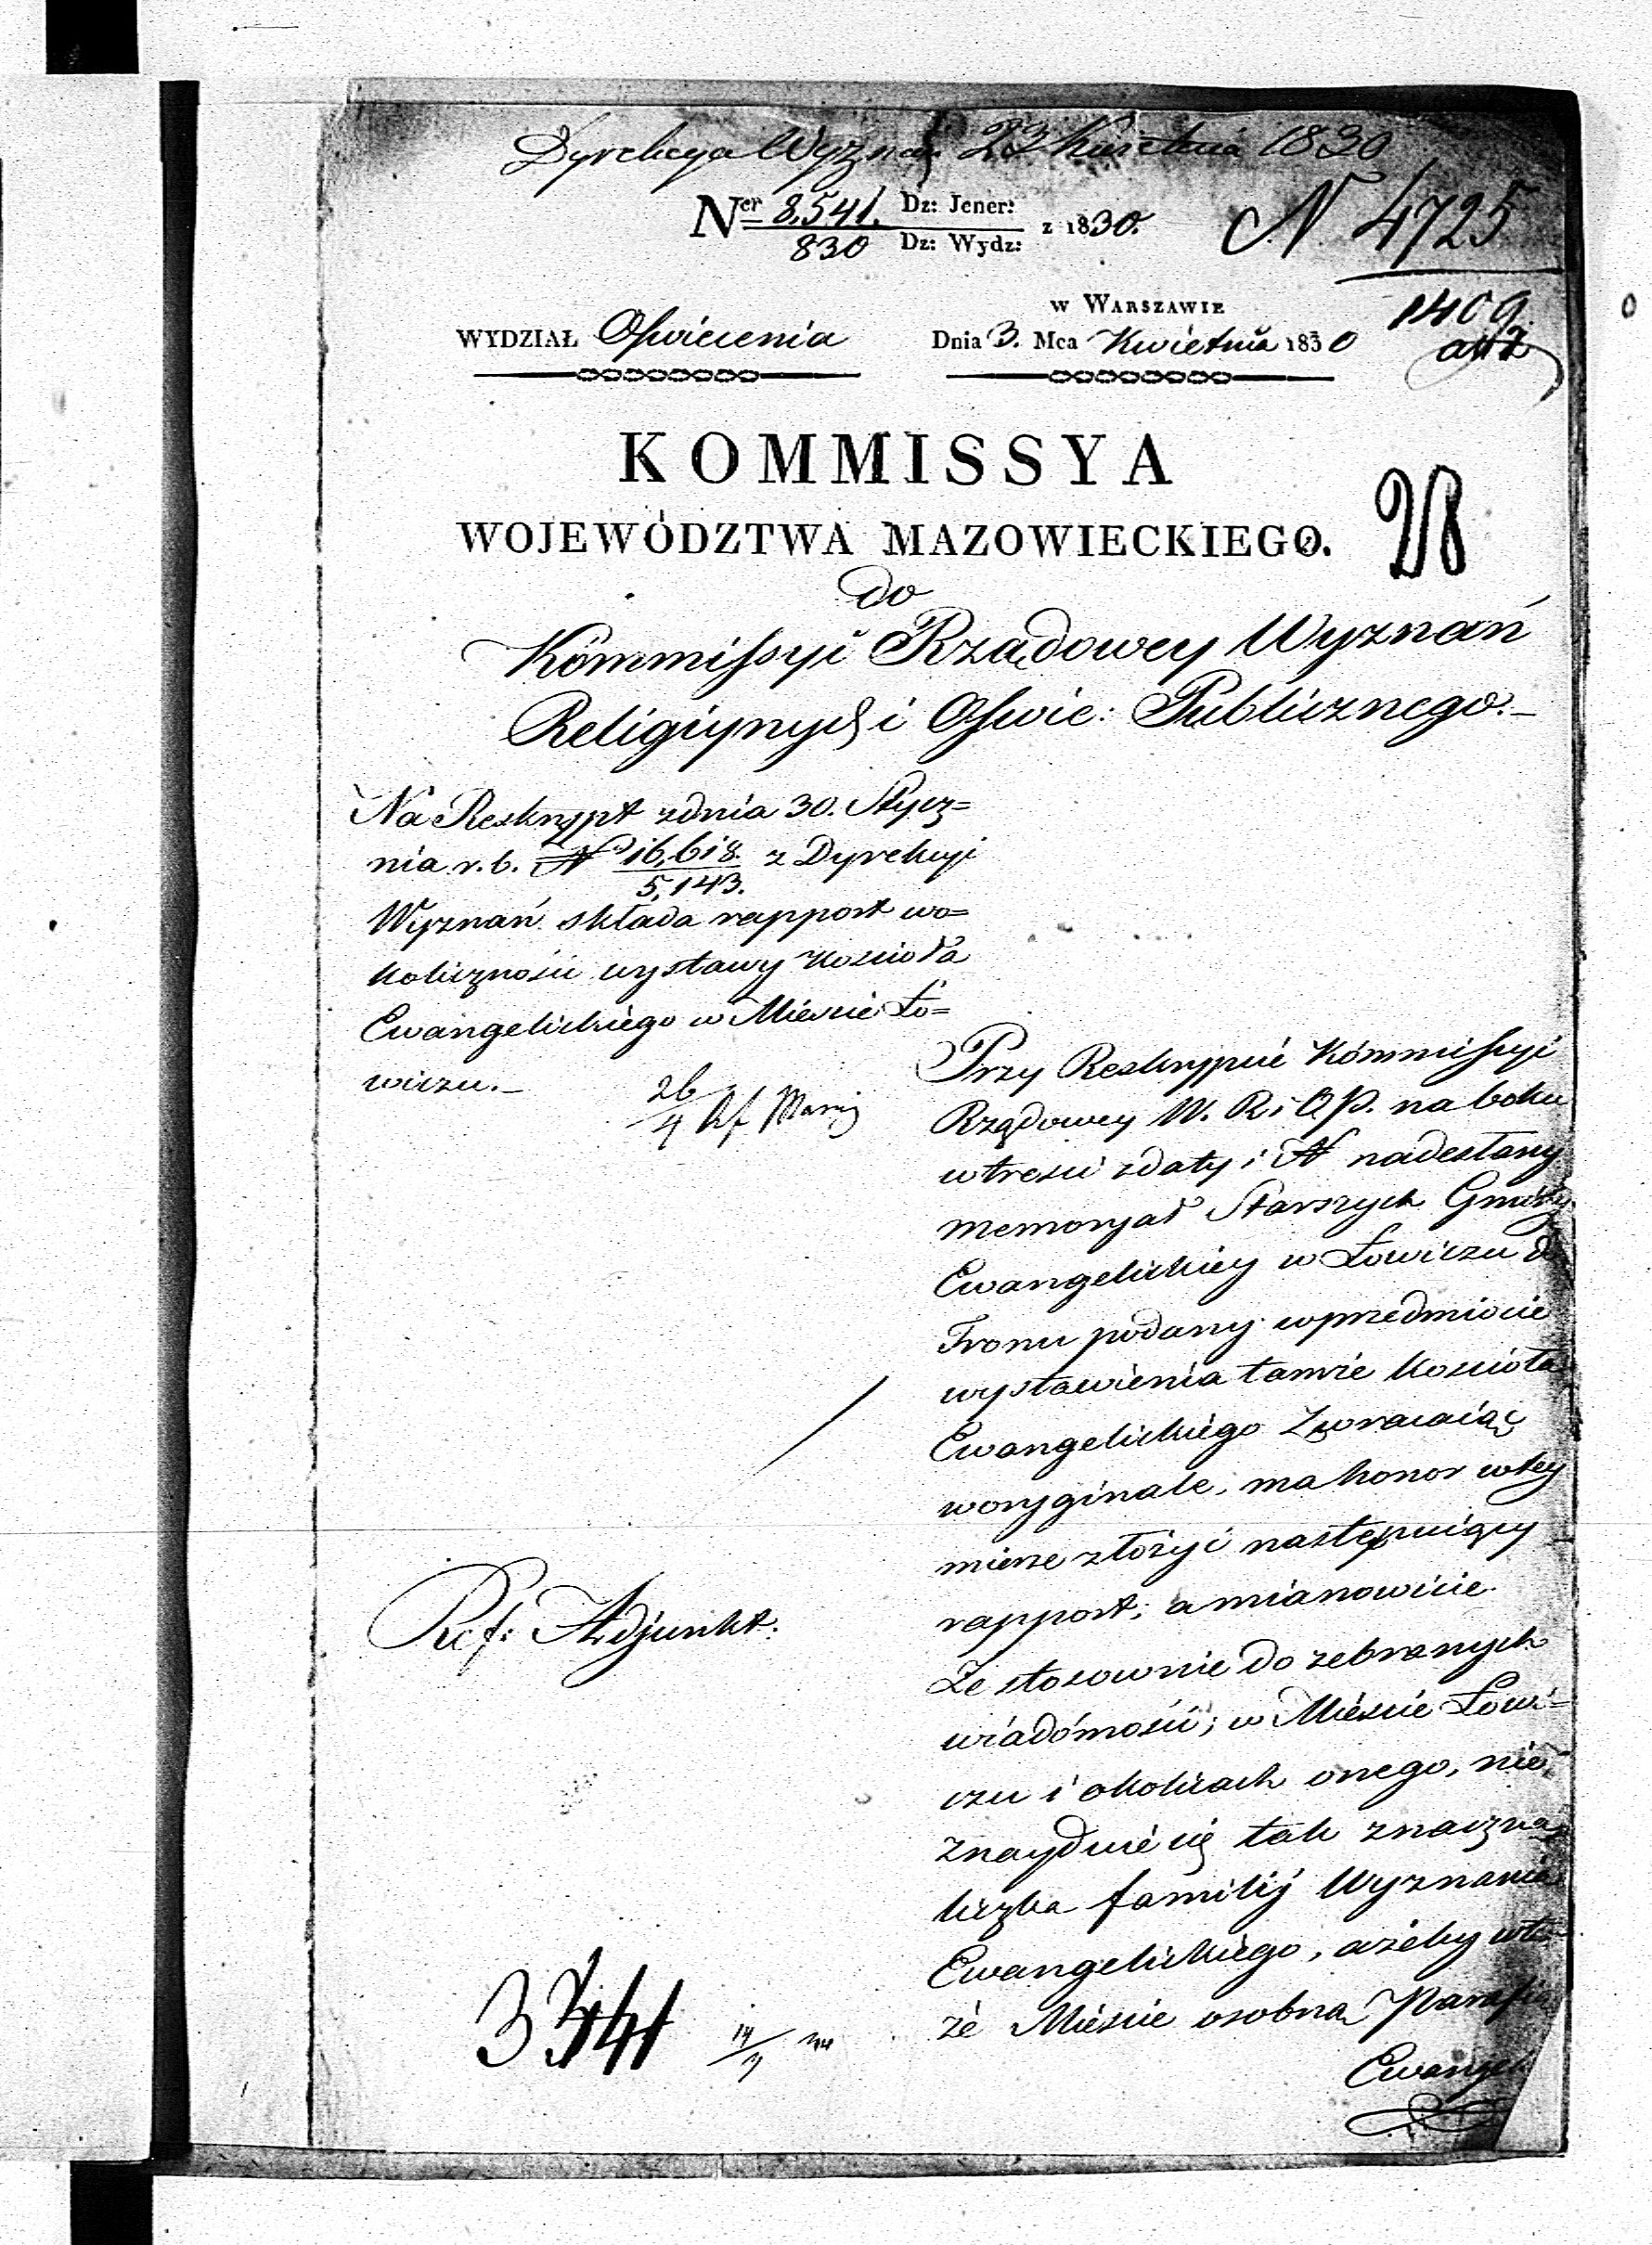 Dyrekcya Wyznań 23 Kwietnia 1830
Ner 8,541. Dz: Jener:
830 Dz: Wydz: z 1830.
N. 4725
1409
w Warszawie
WYDZIAŁ Oświecenia
Dnia 3. Mca Kwietnia 1830
KOMMISSYA
WOJEWÓDZTWA MAZOWIECKIEGO.
28
do
Kommissyi Rządowey Wyznań
Religiynych i Oświe: Publicznego.–
Na Reskrypt z dnia 30. Stycz=
nia r. b. N 16,618. z Dyrekcyi
5,143.
Wyznań składa rapport wo=
koliczności wystawy Kościoła
Ewangelickiego w Mieście Ło=
wiczu.–
26
4
Przy Reskrypcie Kommissyi
Rządowey W. R i O P. na boku
w treści z daty i N nadesłany
memoryał Starszych Gminy
Ewangelickiey w Łowiczu do
Tronu podany w przedmiocie
wystawienia tamże Kościoła
Ewangelickiego zwracaiąc
w oryginale, ma honor w tey
mierze złożyć następuiący
rapport; a mianowicie
Ref: Adjunkt.
Że stosownie do zebranych
wiadomości; w Mieście Łowi=
czu i okolicach onego, nie
znayduie się tak znaczna
liczba familij Wyznania
Ewangelickiego, ażeby wte=
że Mieście osobna Parafia
3341
Ewangeli